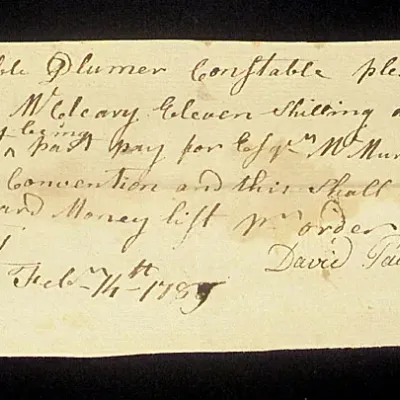 ble Plumer Constable ple
McCleary Eleven Shilling
being
part pay for Esqr McMur
Convention and this Shall
ard Money list pr order
David
Febr 14th 1789